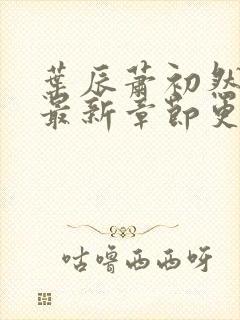 葉辰蕭初然
最新章節更
咕噜西西呀